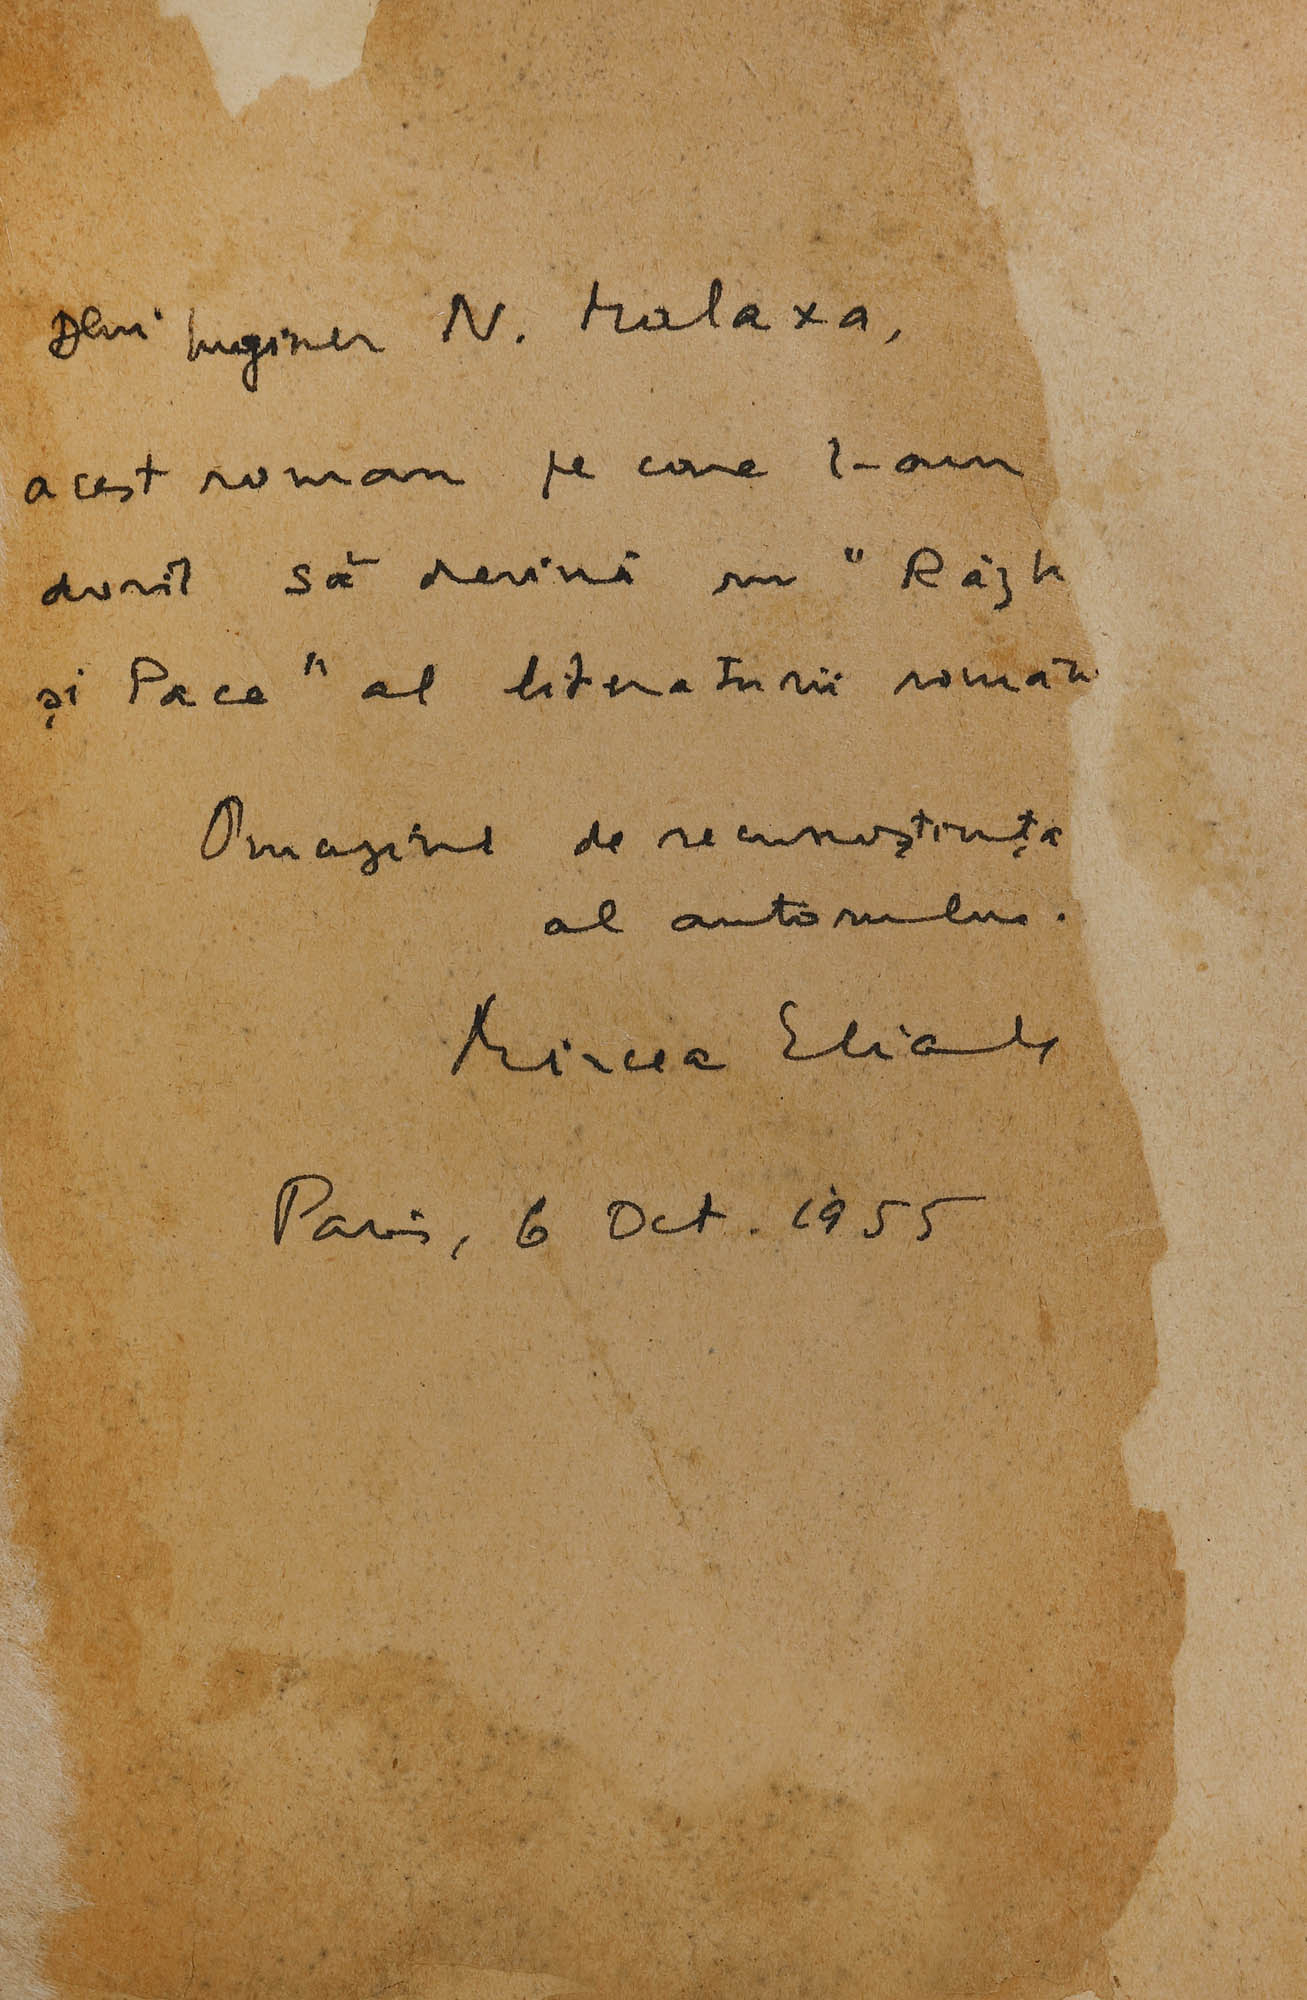 Dlui Inginer N. Malaxa,
acest roman pe care l-am
dorit să devină un "Răzb
și Pace" al literaturii român
Omagiul de recunoștință
al autorului.
Mircea Eliade
Paris, 6 Oct. 1955